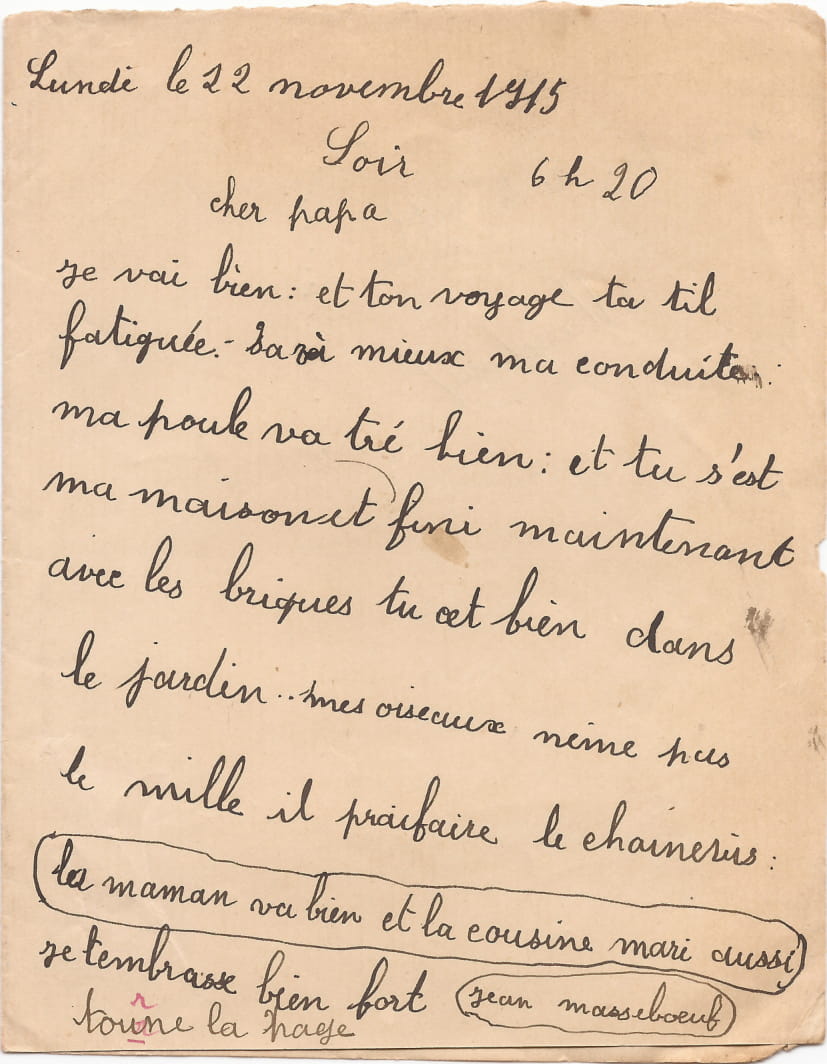 Lundi le 22 novembre 1915
Soir 6 h 20
cher papa
je vai bien : et ton voyage ta til
fatiguée.- mieux ma conduite :
ma poule va tré bien : et tu s'est
ma maison et fini maintenant
avec les briques tu bien dans
le jardin .. mes oiseaux neime pas
le mille il praifaire le :
la maman va bien et la cousine mari aussi
je tembrasse bien fort jean masseboeuf
tourne la page